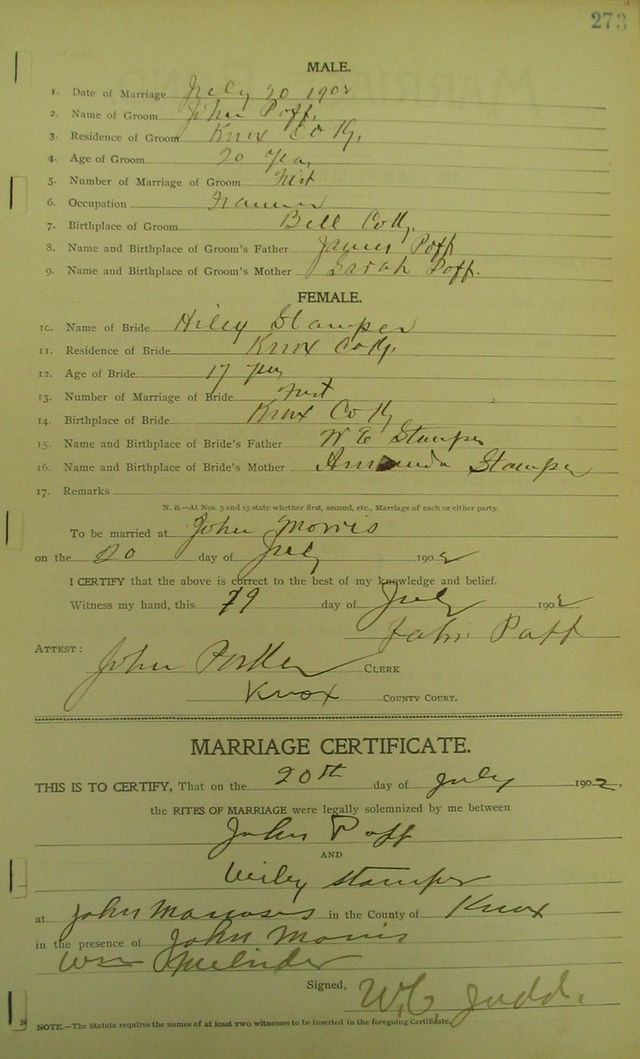 273
MALE.
1. Date of Marriage July 20 1902
2. Name of Groom John Poff.
3. Residence of Groom Knox Co Ky.
4. Age of Groom 20 yea
5. Number of Marriage of Groom First
6. Occupation Farmer
7. Birthplace of Groom Bell Co Ky.
8. Name and Birthplace of Groom's Father James Poff
9. Name and Birthplace of Groom's Mother Sarah Poff.
FEMALE.
10. Name of Bride Hiley Stamper
11. Residence of Bride Knox Co Ky.
12. Age of Bride 17 yea
13. Number of Marriage of Bride First
14. Birthplace of Bride Knox Co Ky
15. Name and Birthplace of Bride's Father W E Stamper
16. Name and Birthplace of Bride's Mother Amanda Stamper
17. Remarks
N. B.—At Nos. 5 and 13 state whether first, second, etc., Marriage of each or either party.
To be married at John Morris
on the 20 day of July 1902
I CERTIFY that the above is correct to the best of my knowledge and belief.
Witness my hand, this 19 day of July 1902
John Poff
ATTEST:
John CLERK
Knox COUNTY COURT.
MARRIAGE CERTIFICATE.
THIS IS TO CERTIFY, That on the 20th day of July 1902.
the RITES OF MARRIAGE were legally solemnized by me between
John Poff
AND
Wiley Stamper
at John in the County of Knox
in the presence of John Morris
Wm
Signed, W. C. Judd.
NOTE.—The Statute requires the names of at least two witnesses to be inserted in the foregoing Certificate.